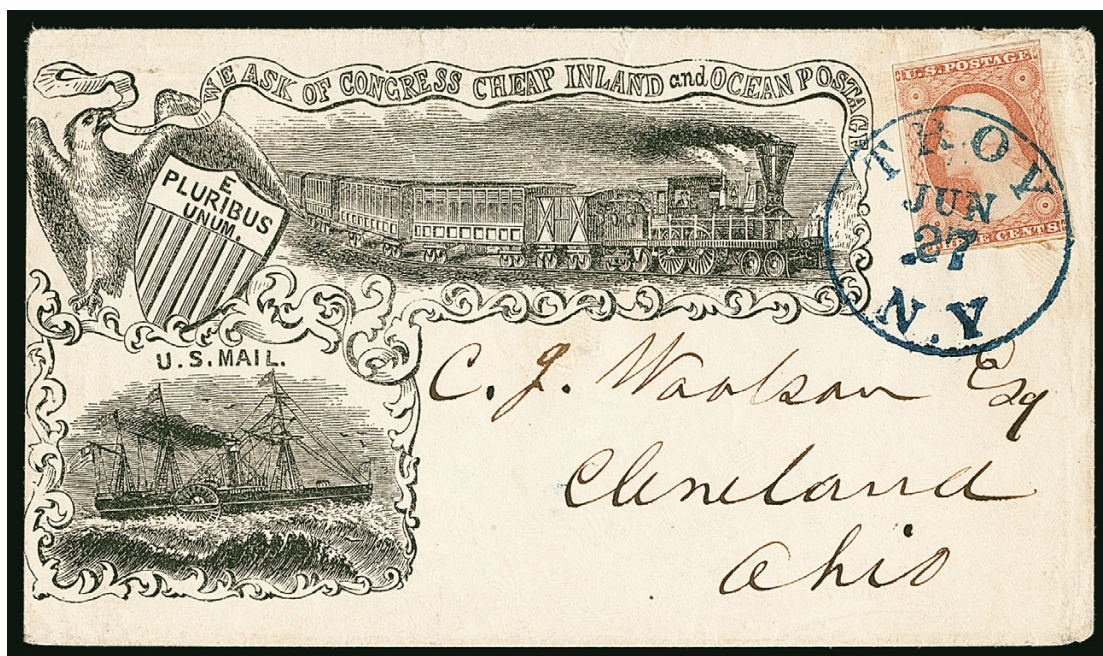 WE ASK OF CONGRESS CHEAP INLAND and OCEAN POSTAGE
E.
PLURIBUS
UNUM.
U.S. POSTAGE
THREE CENTS
TROY
JUN
27
N.Y.
U.S. MAIL.
C. J. Woolson Esq
Cleveland
Ohio